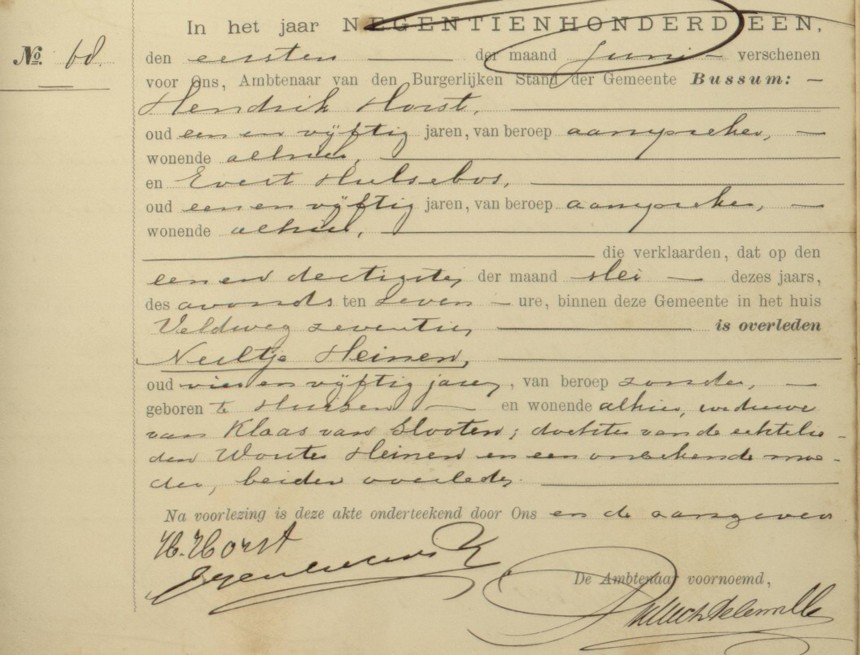 In het jaar NEGENTIENHONDERD EEN,
No. 68.
den eersten der maand Juni verschenen
voor Ons, Ambtenaar van den Burgerlijken Stand der Gemeente Bussum:
Hendrik Horst,
oud een en vijftig jaren, van beroep aanspreker,
wonende alhier,
en Evert Hulsebos,
oud een en vijftig jaren, van beroep aanspreker,
wonende alhier,
die verklaarden, dat op den
een en dertigsten der maand Mei dezes jaars,
des avonds ten zeven ure, binnen deze Gemeente in het huis
Veldweg zeventien is overleden
Neeltje Heinen,
oud vier en vijftig jaren, van beroep zonder,
geboren te Huizen en wonende alhier, weduwe
van Klaas van Slooten; dochter van de echtelie-
den Wouter Heinen en een onbekende moe-
der, beiden overleden.
Na voorlezing is deze akte onderteekend door Ons en de aangevers
H. Horst
De Ambtenaar voornoemd,